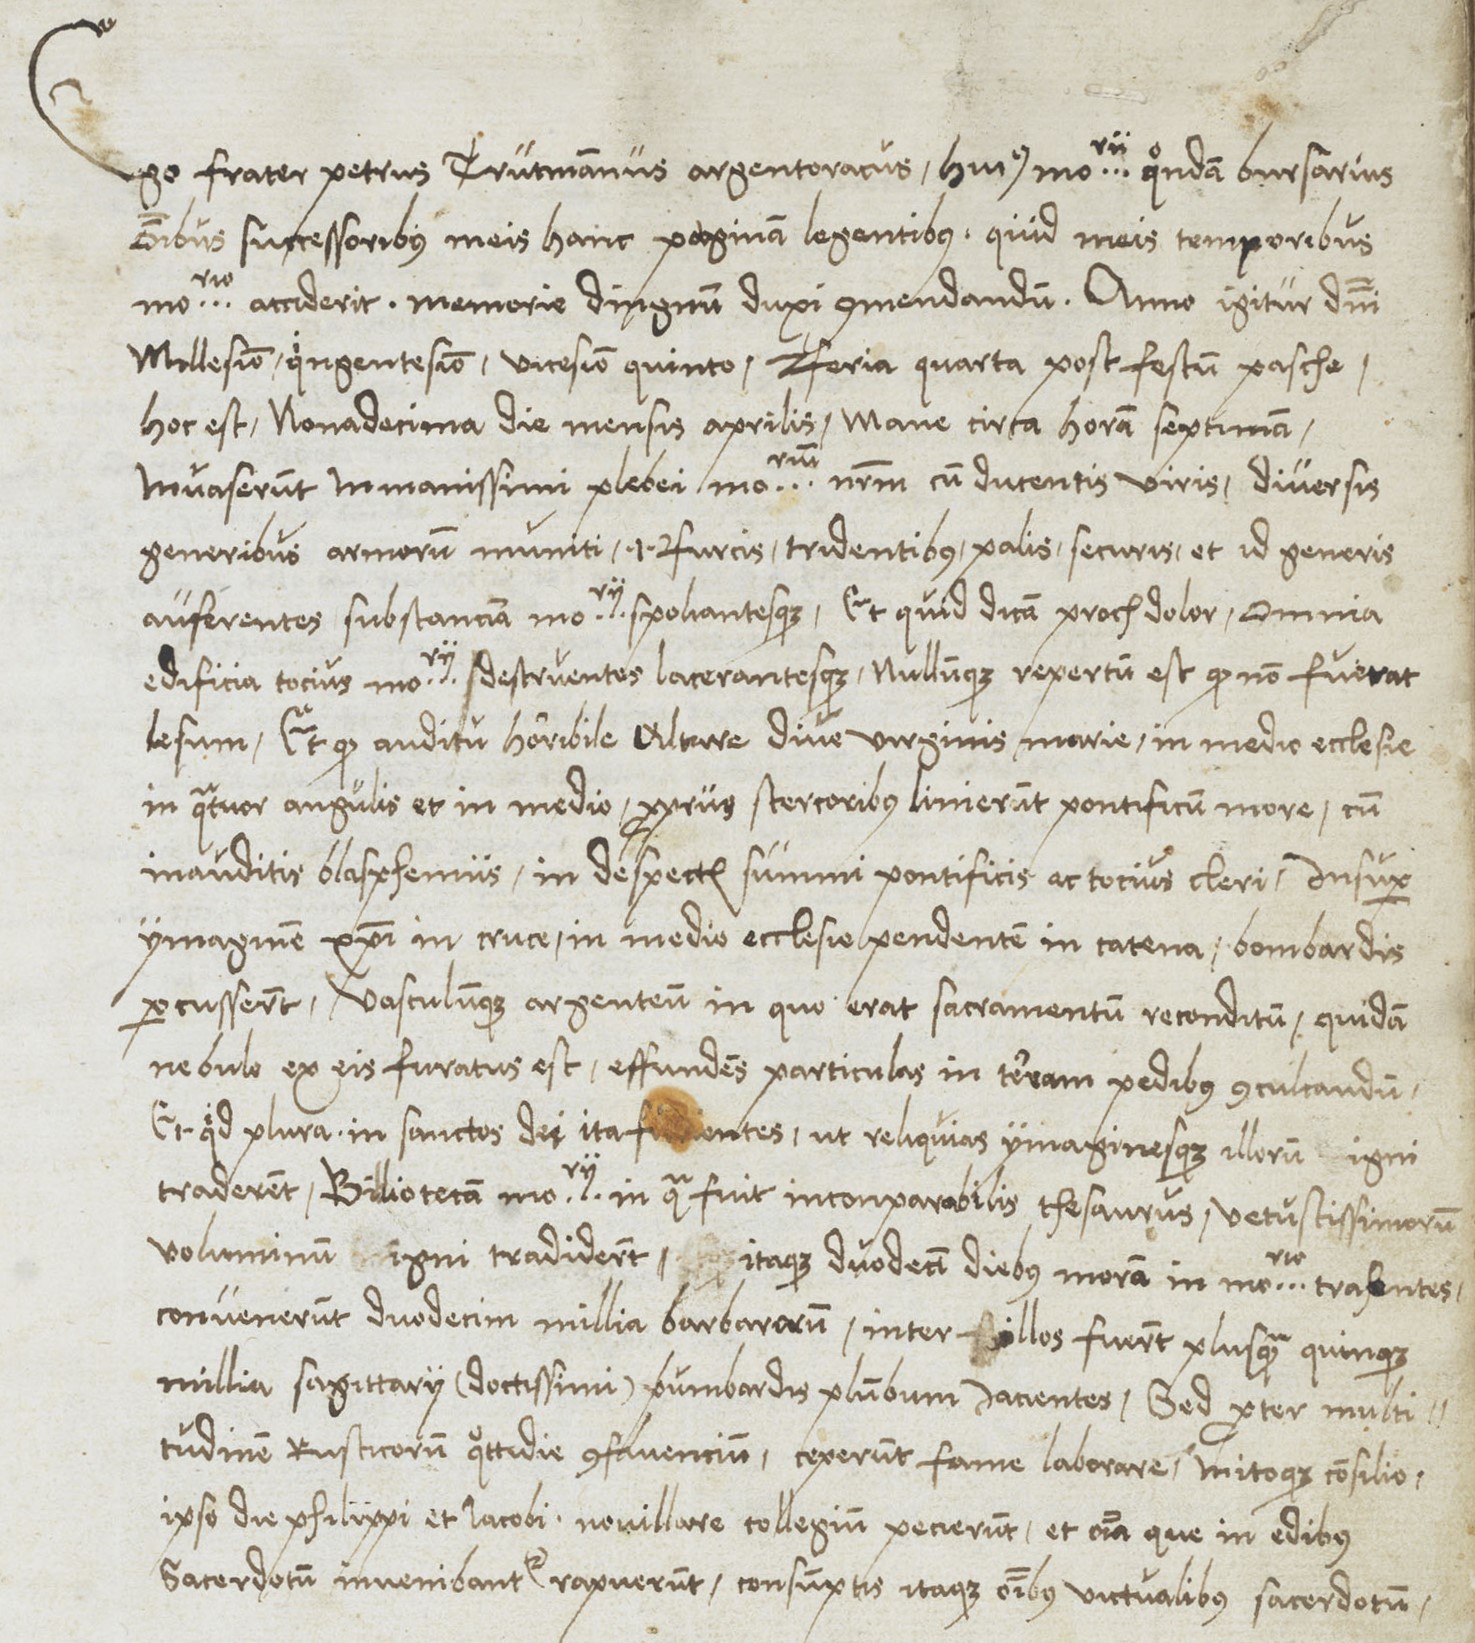 Ego frater petrus Trutmānus argentoracus / huiꝰ mo...rii qͦndā bursarius
Oībus successoribꝰ meis hanc paginā legentibꝰ. quid meis temporibus
mo...rio acciderit. memorie dingnū duxi ꝯmendandū. Anno igitur dn̄i
Millesiō / qͥngentesiō / vicesiō quinto / feria quarta post festū pasche /
hoc est / Nonadecima die mensis aprilis / Mane circa horā septimā /
Inuaserūt Inmanissimi plebei mo...riū nr̄m cū ducentis viris / diuersis
generibus armorū muniti / .i. furcis / tridentibꝰ / palis / securis / et id generis
auferentes substanciā mo..rij spoliantesqꝫ / Et quid dicā proch dolor / omnia
edificia tocius mo..rij destruentes lacerantesqꝫ / Nullūqꝫ repertū est qꝫ nō fuerat
lesum / Et qꝫ auditu horribile Altare diue virginis marie / in medio ecclesie
in qᵃtuor angulis et in medio / ꝓprijs stercoribꝰ linierūt pontificū more / cū
inauditis blasphemiis / in despectū summi pontificis ac tocius cleri / Insuꝑ
ymaginē xp̄i in cruce / in medio ecclesie pendentē in catena / bombardis
ꝑcusserūt / Vasculūqꝫ argenteū in quo erat sacramentū reconditū / quidā
nebulo ex eis furatus est / effundēs particulas in terram pedibꝰ ꝯculcandū /
Et qͥd plura. in sanctos dei ita furientes / ut reliquias ymaginesqꝫ illorū igni
traderēt / Billiotecā mo..rij in qᵃ fuit inconparabilis thesaurus / vetustissimorū
voluminū igni tradiderūt / itaqꝫ duodecī diebꝰ morā in mo...rio trahentes /
conuenerūt duodecim millia barbarorū / inter illos fuerūt plusqᵃ quinqꝫ
millia sagittarij (doctissimi) pumbardis plūbum Iacientes / Sed ꝓpter multi⸗
tudinē Rusticorū qͦttidie ꝯfluenciū / ceperūt fame laborare / Initoqꝫ cōsilio.
ipso die philippi et Iacobi. nouillare collegiū pecierūt / et oīa que in edibꝰ
Sacerdotū inuenibant rapuerūt / consūptis itaqꝫ oībꝰ victualibꝰ sacerdotū /